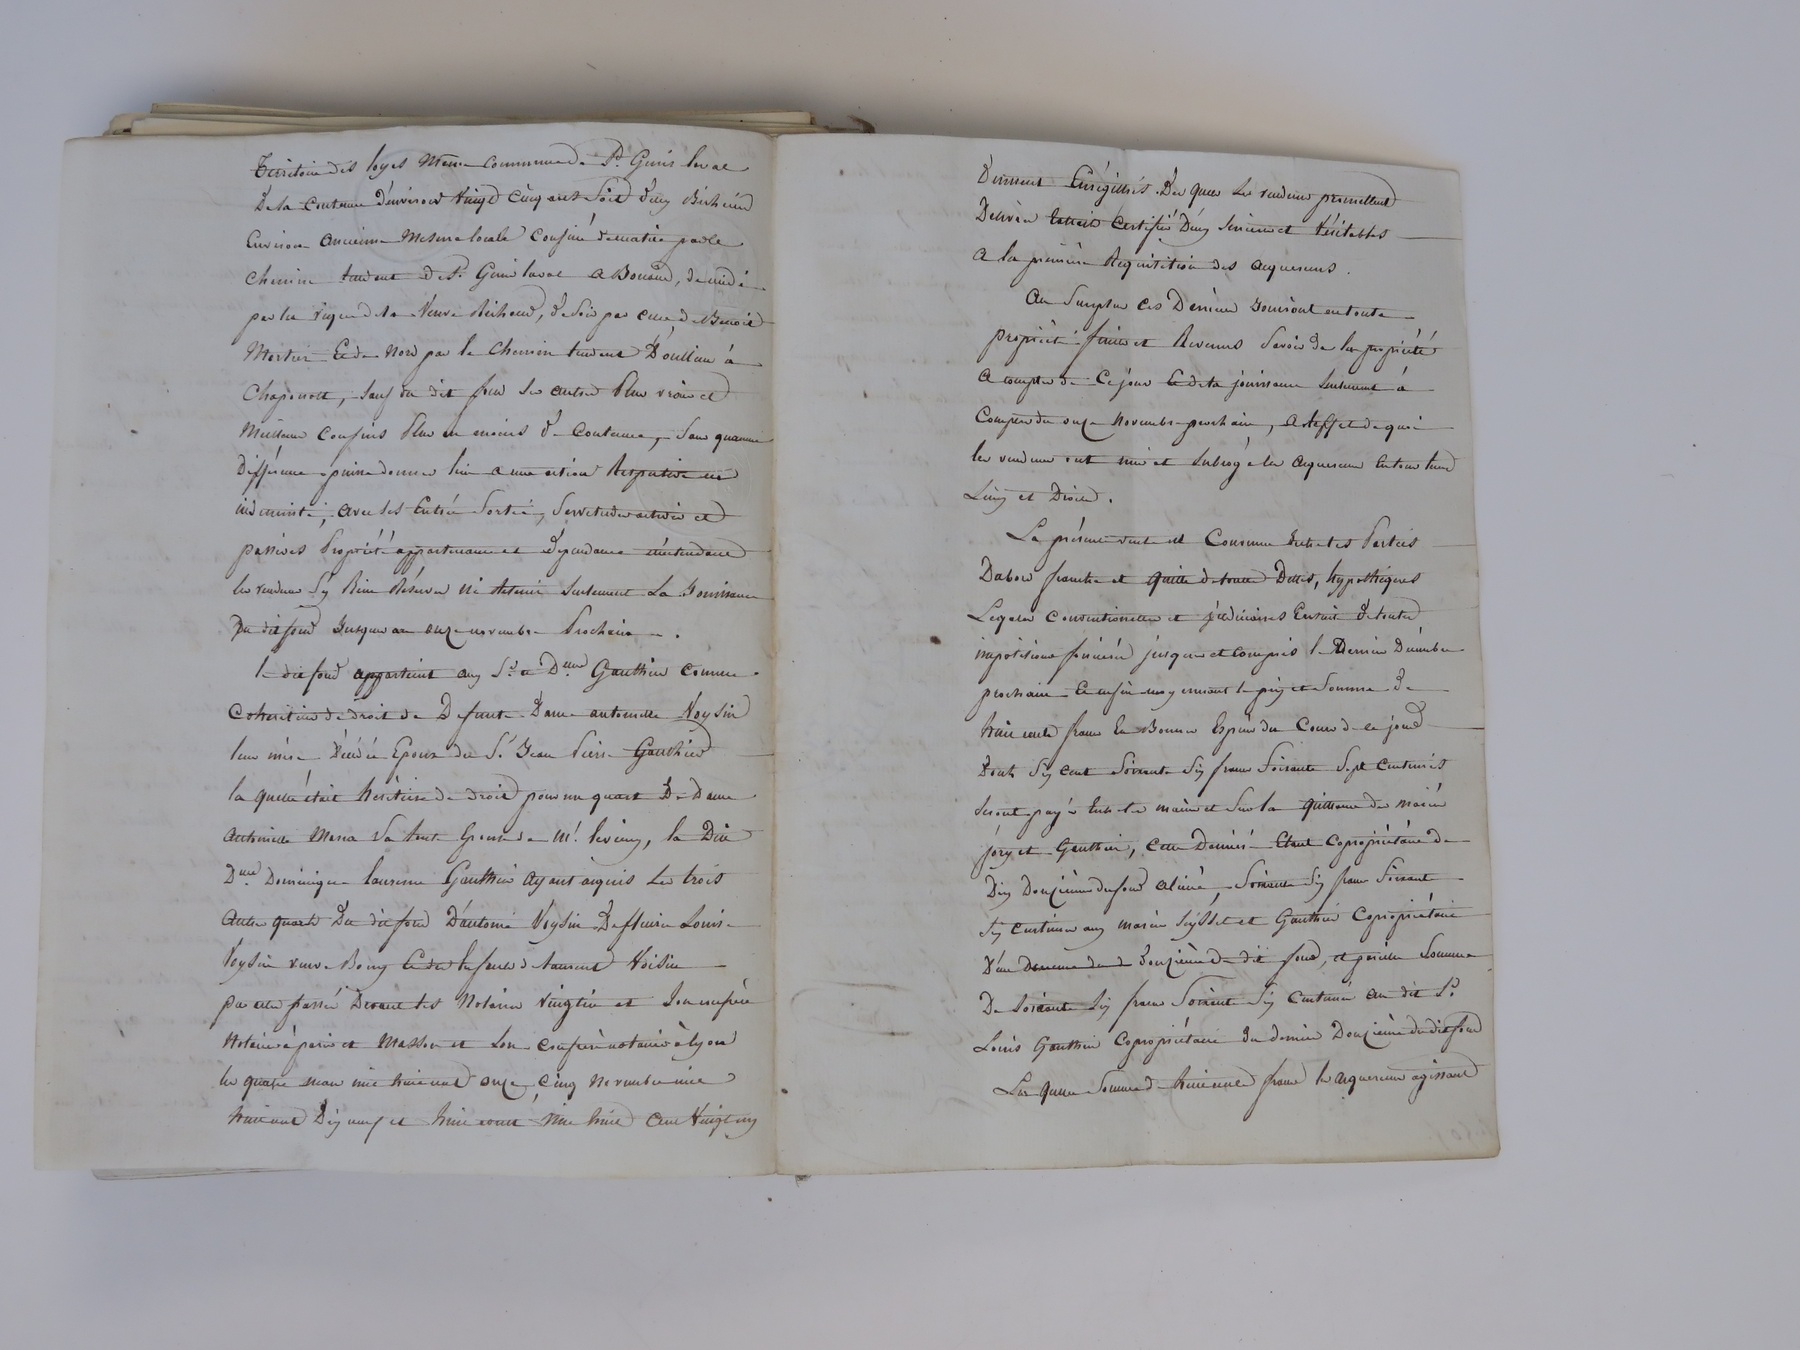 Territoire des loyes Même commune de St. Genis laval
De la contenue d'environ Vingt cinq ares soit deux Bicherées
Environ ancienne Mesure locale confiné de matin par le
chemin tendant de St. Genis laval a Bonand, de midi
par les vignes de la Veuve Richoud, de soir par celle de Benoit
Mortier Et de Nord par le Chemin tendant D'oullins à
Chaponost, sauf du dit fond ses autres Plus vrais et
Meilleurs confins Plus ou moins de Contenue, sans qu'aucune
Différence puisse donner lieu a une action Respective en
indemnité, avec ses Entrée Sortie, Servitudes actives et
passives Propriété appartenances et Dépendances n'entendant
les vendeurs s'y Rien Réserver ni Retenir seulement La Jouissance
Du dit fond Jusqu'au onze novembre Prochain.
le dit fond appartient aux Srs. et Dme. Gauthier comme
Cohéritiers de droit de Defunte Dame antoinette Voysin
leur mère Décédée Epouse du Sr. Jean Pierre Gauthier
la quelle était héritière de droit pour un quart De Dame
Antoinette Sa tante Epouse de Mr. la Dite
Dme. Dominique laurence Gauthier ayant acquis Les trois
autres quarts Du dit fond D'antoine Voysin De Louise
Voysin veuve Et de de laurent Voisin
par acte passés Devant les Notaires et Son confrère
Notaires à paris et Masson et Son confrère notaires à lyon
les quatre mars mil huit cent onze, cinq novembre mil
huit cent Dix neuf et huit aout Mil huit Cent Vingt un
Dûment Enrégistrés. Des quels Les vendeurs promettent
Délivrer Extrait Certifiés Deux Sincères et Véritables
a la première Réquisition des acquéreurs.
Au Surplus ces Derniers Jouiront en toute
propriété fruits et Revenus Savoir de la propriété
a compter de Ce jour Et de la jouissance Seulement à
Compter du onze Novembre prochain, a l'effet de quoi
les vendeurs ont mis et subrogé les acquéreurs En tous leurs
Lieux et Droits.
La présente vente est Convenue Entre les Parties
D'abord franche et quitte de toutes Dettes, hypothèques
Légales conventionelles et judiciaires Ensuite de toutes
impositions foncières jusques et compris le Dernier Décembre
prochain Et enfin moyennant le prix et Somme de
huit cents francs En Bonnes Espèces du Cours de ce jour
Dont Six cent Soixante Six francs Soixante Sept Centimes
Seront payés Entre les mains et Sur la quittance des mariés
et Gauthier, cette Dernière Etant Copropriétaire de
Dix Douzièmes du fond aliéné, Soixante Six francs Soixante
Six Centimes aux mariés et Gauthier Copropriétaire
D'un Douzième du dit fond, et pareille Somme
De Soixante Six francs Soixante Six Centimes au dit Sr.
Louis Gauthier Copropriétaire du dernier Douzième du dit fond
La quelle Somme de huit cent francs les acquéreurs agissant